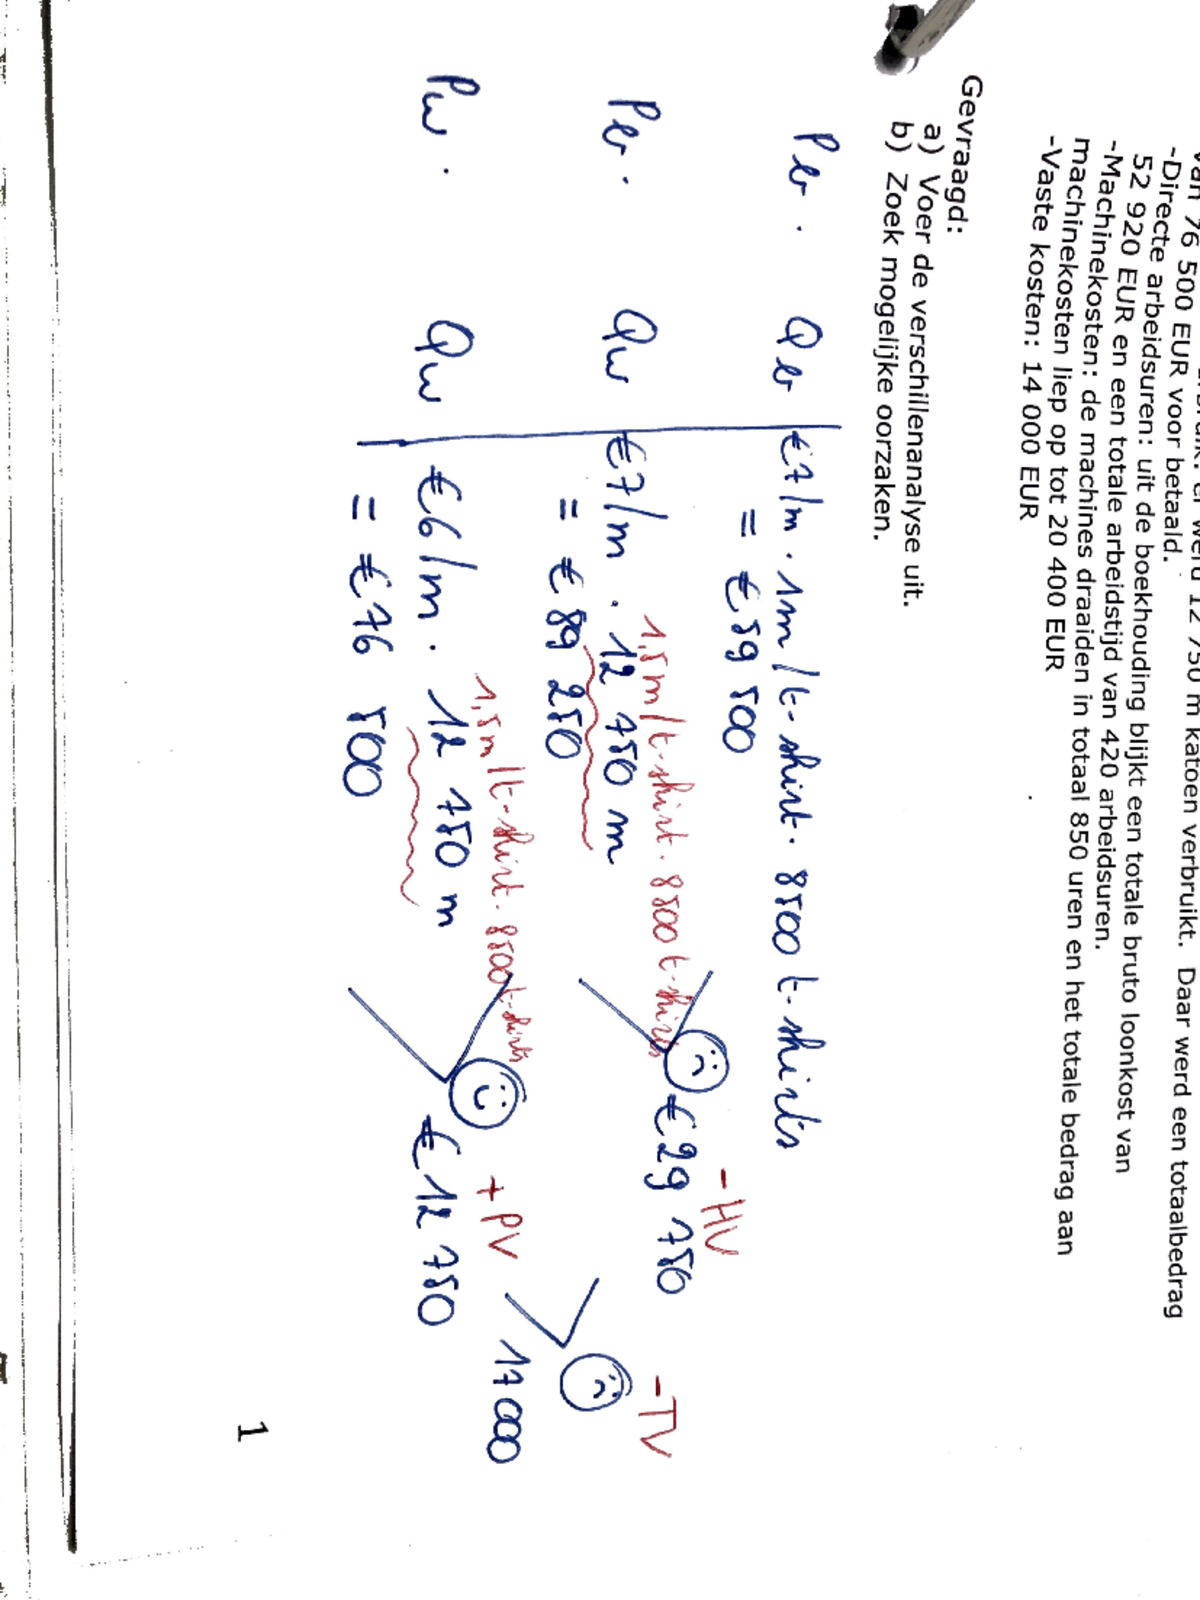 van 76 500 EUR voor betaald.
-Directe arbeidsuren: uit de boekhouding blijkt een totale bruto loonkost van
52 920 EUR en een totale arbeidstijd van 420 arbeidsuren.
-Machinekosten: de machines draaiden in totaal 850 uren en het totale bedrag aan
machinekosten liep op tot 20 400 EUR
-Vaste kosten: 14 000 EUR
Gevraagd:
a) Voer de verschillenanalyse uit.
b) Zoek mogelijke oorzaken.
Per . Qer €7/m . 1m/t-shirt . 8500 t-shirts
= €59 500
- HV
1,5m/t-shirt . 8500 t-shirts
€29 750
- TV
Per . Qw €7/m . 12 750 m
= €89 250
+ PV
17 000
1,5m/t-shirt . 8500 t-shirts
Pw . Qw €6/m . 12 750 m
€12 750
= €76 500
1